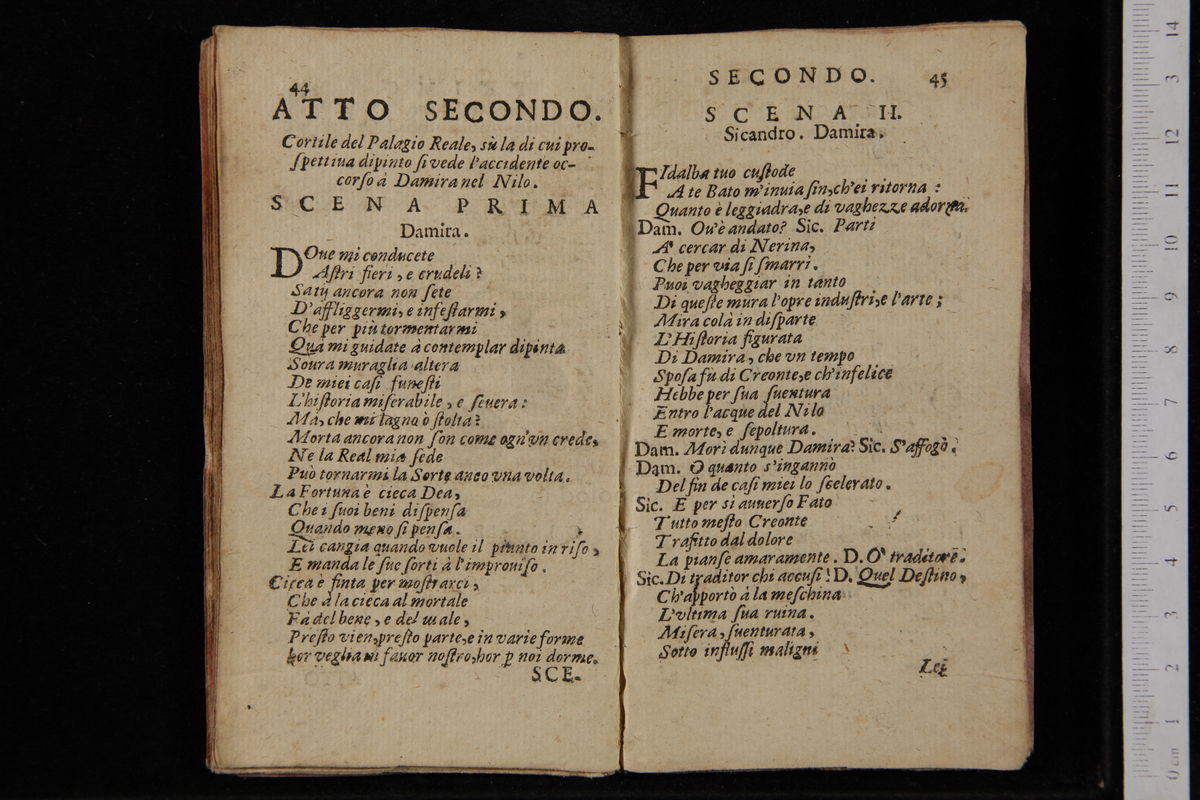 44
ATTO SECONDO.
Cortile del Palagio Reale, sù la di cui pro-
ſpettiua dipinto ſi vede l'accidente oc-
corſo à Damira nel Nilo.
SCENA PRIMA
Damira.
DOue mi conducete
Aſtri fieri, e crudeli?
Satij ancora non ſete
D'affliggermi, e infeſtarmi,
Che per più tormentarmi
Quà mi guidate à contemplar dipinta
Soura muraglia altera
De miei caſi funeſti
L'hiſtoria miſerabile, e ſeuera:
Mà, che mi lagno ò ſtolta?
Morta ancora non ſon come ogn'vn crede,
Ne la Real mia ſede
Può tornarmi la Sorte anco vna volta.
La Fortuna è cieca Dea,
Che i ſuoi beni diſpenſa
Quando meno ſi penſa.
Lei cangia quando vuole il pianto in riſo,
E manda le ſue ſorti à l'improuiſo.
Cieca è finta per moſtrarci,
Che à la cieca al mortale
Fà del bene, e del male,
Preſto vien, preſto parte, e in varie forme
hor veglia in fauor noſtro, hor p noi dorme.
SCE-
SECONDO. 45
SCENA II.
Sicandro. Damira.
FIdalba tuo cuſtode
A te Bato m'inuia ſin, ch'ei ritorna:
Quanto è leggiadra, e di vaghezze adorna.
Dam. Ou'è andato? Sic. Parti
A' cercar di Nerina,
Che per via ſi ſmarrì.
Puoi vagheggiar in tanto
Di queſte mura l'opre induſtri, e l'arte;
Mira colà in diſparte
L'Hiſtoria figurata
Di Damira, che vn tempo
Spoſa fu di Creonte, e ch'infelice
Hebbe per ſua ſuentura
Entro l'acque del Nilo
E morte, e ſepoltura.
Dam. Morì dunque Damira? Sic. S'affogò.
Dam. O quanto s'ingannò
Del fin de caſi miei lo ſcelerato.
Sic. E per sì auuerſo Fato
Tutto meſto Creonte
Trafitto dal dolore
La pianſe amaramente. D. O' traditore.
Sic. Di traditor chi accuſi! D. Quel Deſtino,
Ch'apportò à la meſchina
L'vltima ſua ruina.
Miſera, ſuenturata,
Sotto influſſi maligni
Lei
14
3
12
11
10
9
8
7
6
5
4
3
2
1
0 cm